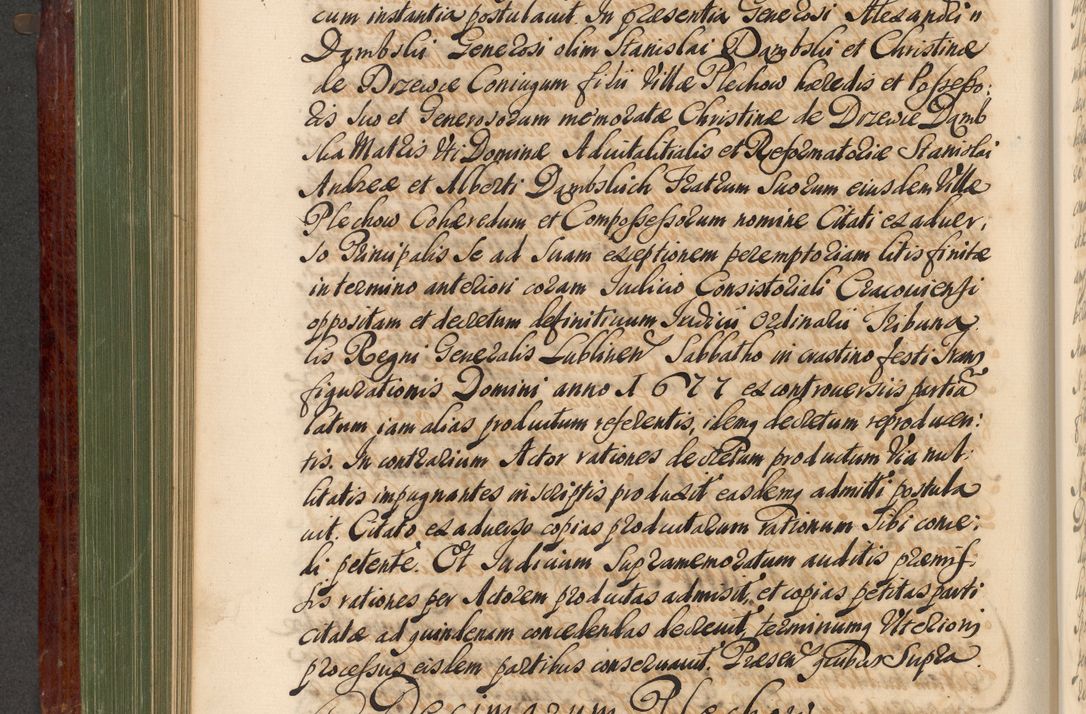 cum instantia postulavit. In præsentia Generosi Alexandri
Dąmbslii Generosi olim Stanislai Dąmbslii et Christinæ
de Drzewce Coniugum filii Villæ Plechow hæredis et Possesso:
ris suo et Generosorum memoratæ Christinæ de Drzewie Dąmb
ska Matris Uti Dominæ Advitalitialis et Reformatoriæ Stanislai
Andreæ et Alberti Dąmbslich Fratrum Suorum eiusdem Villæ
Plechow Cohæredum et Compossessorum nomine Citati ex adver,
so Principalis se ad suam exeptionem peremptoriam litis finitæ
in termino anteriori coram Iudicio Consistoriali Cracoviensi
oppositam et decretum definitivum Iudicii Ordinarii Tribuna
lis Regni Generalis Lublinen Sabbatho in crastino festi Trans
figurationis Domini anno 1677 ex controversiis partiũ
latum iam alias productum referentis, idemq decretum reproducen:
tis. In contrarium Actor rationes decretum productum Via nul:
litatis impugnantes in scriptis produxit easdemq admitti postula
vit. Citato ex adverso copias productarum rationum Sibi conce:
di petente. Et Iudicium Supramemoratum auditis præmis
sis rationes per Actorem productas admisit, et copias petitas parti
citatæ ad quindenam concedendas decrevit, terminumq Ulterioris
processus eisdem partibus conservavit. Præsen quibus Supra.
Decimarum Plechow